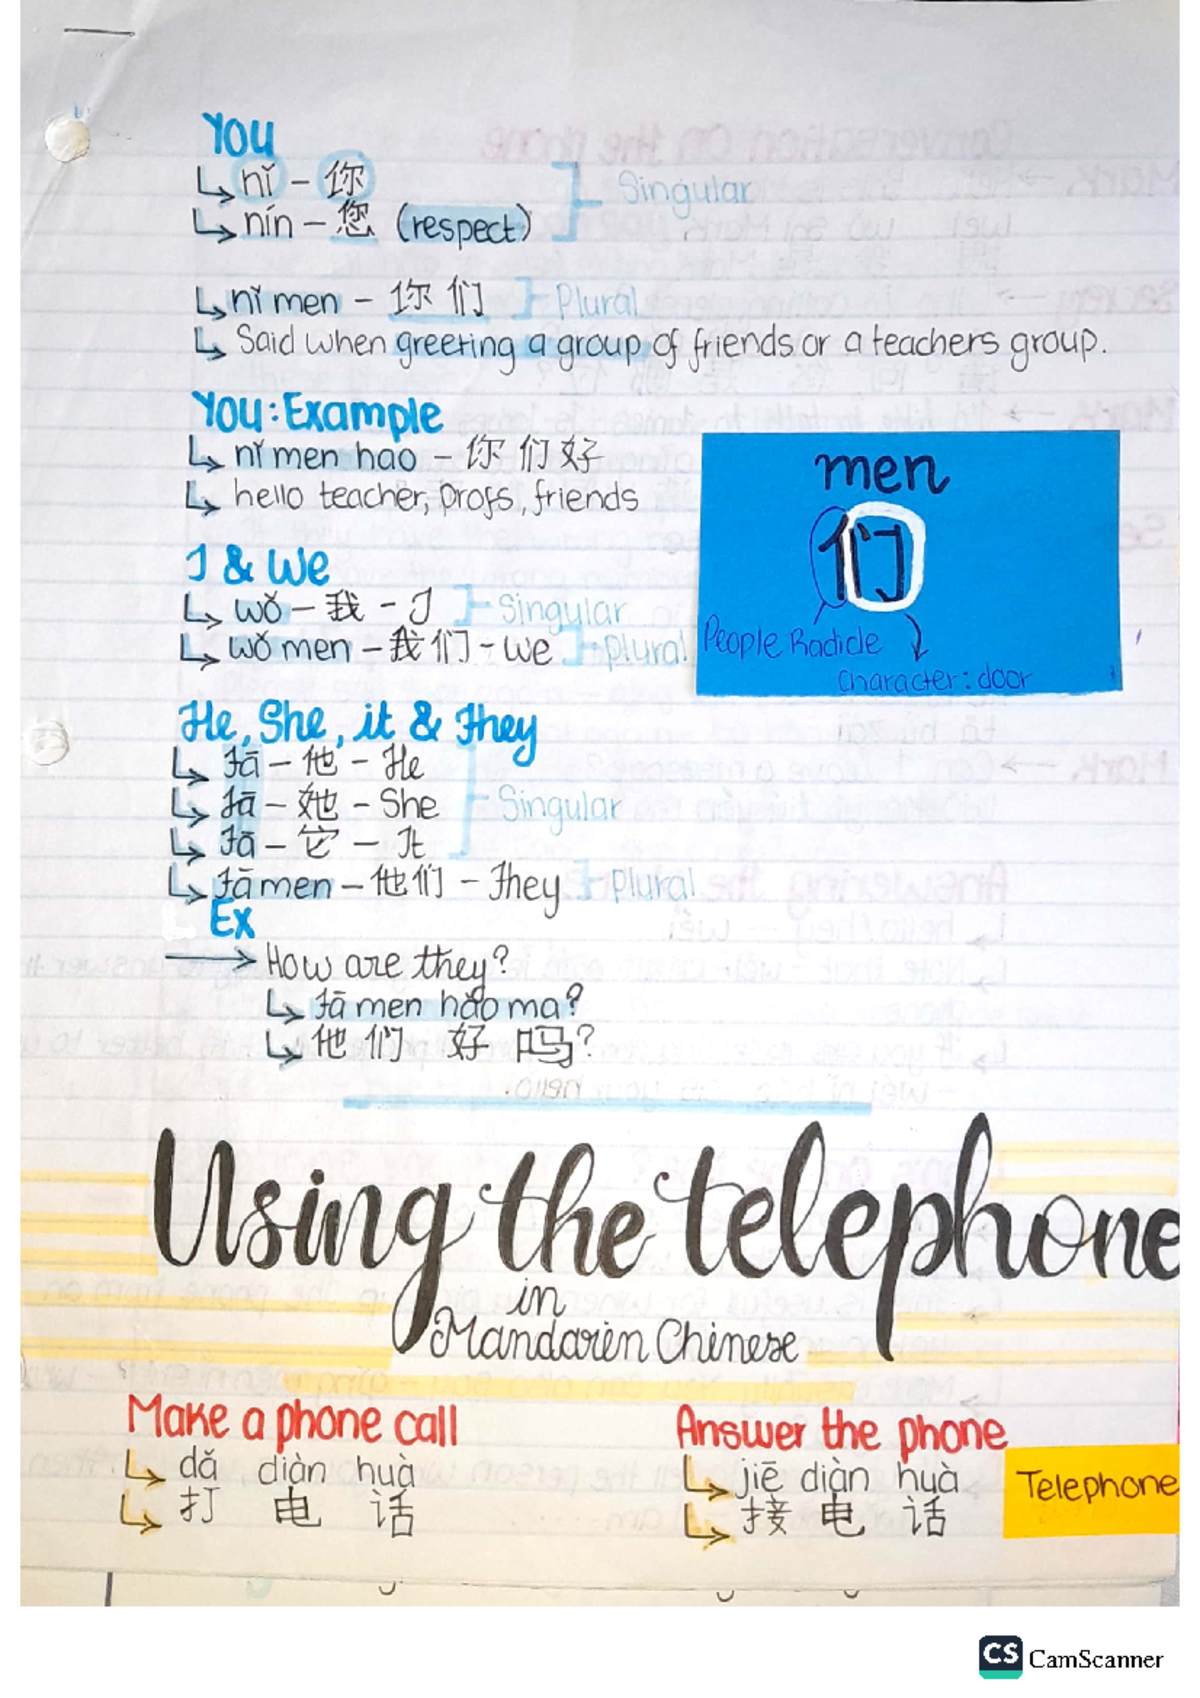 You
↳ nǐ - 你
↳ nín - 您 (respect)
Singular
↳ nǐ men - 你们 Plural
↳ Said when greeting a group of friends or a teachers group.
You: Example
↳ nǐ men hao - 你们好
↳ hello teacher, profs, friends
men
们
People Radicle
Character: door
I & We
↳ wǒ - 我 - I Singular
↳ wǒ men - 我们 - we Plural
He, She, it & They
↳ tā - 他 - He
↳ tā -她 - She
Singular
↳ tā - 它 - It
↳ tā men - 他们 - They Plural
Ex
→ How are they?
↳ tā men hǎo ma?
↳ 他们 好 吗?
Using the telephone
in
Mandarin Chinese
Make a phone call
↳ dǎ diàn huà
↳ 打 电 话
Answer the phone
↳ jiē diàn huà
↳ 接 电 话
Telephone
CS CamScanner